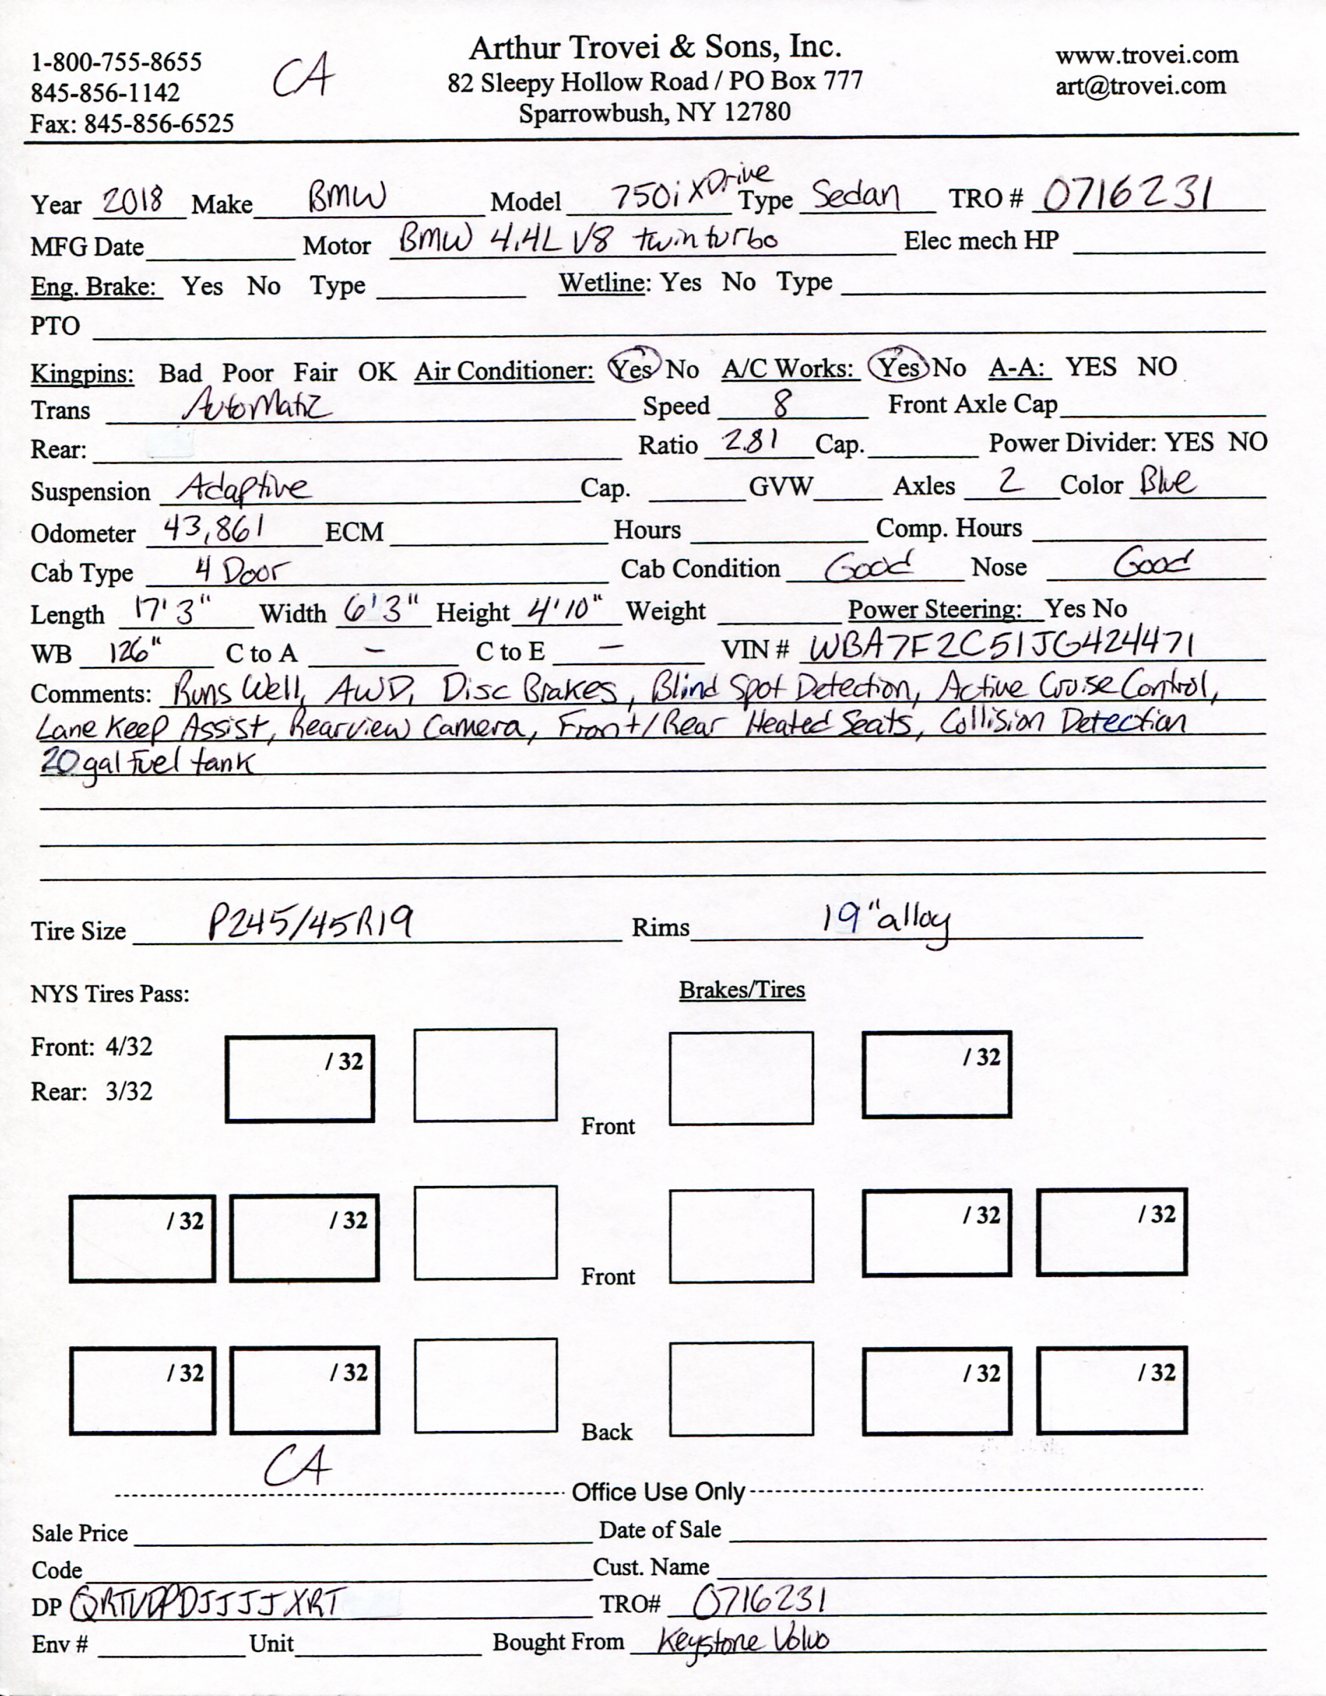 1-800-755-8655
845-856-1142
Fax: 845-856-6525
CA
Arthur Trovei & Sons, Inc.
82 Sleepy Hollow Road / PO Box 777
Sparrowbush, NY 12780
www.trovei.com
art@trovei.com
Year 2018 Make BMW Model 750i xDrive Type Sedan TRO # 0716231
MFG Date Motor BMW 4.4L V8 twin turbo Elec mech HP
Eng. Brake: Yes No Type Wetline: Yes No Type
PTO
Kingpins: Bad Poor Fair OK Air Conditioner: Yes No A/C Works: Yes No A-A: YES NO
Trans Automatic Speed 8 Front Axle Cap
Rear: Ratio 2.81 Cap. Power Divider: YES NO
Suspension Adaptive Cap. GVW Axles 2 Color Blue
Odometer 43,861 ECM Hours Comp. Hours
Cab Type 4 Door Cab Condition Good Nose Good
Length 17' 3" Width 6' 3" Height 4' 10" Weight Power Steering: Yes No
WB 126" C to A – C to E – VIN # WBA7F2C51JG424471
Comments: Runs Well, AWD, Disc Brakes, Blind Spot Detection, Active Cruise Control,
Lane Keep Assist, Rearview Camera, Front/Rear Heated Seats, Collision Detection
20 gal fuel tank
Tire Size P245/45R19 Rims 19" alloy
NYS Tires Pass: Brakes/Tires
Front: 4/32
Rear: 3/32
/ 32 / 32
Front
/ 32 / 32 / 32 / 32
Front
/ 32 / 32 / 32 / 32
Back
CA
Office Use Only
Sale Price Date of Sale
Code Cust. Name
DP TRO# 0716231
Env # Unit Bought From Keystone Volvo